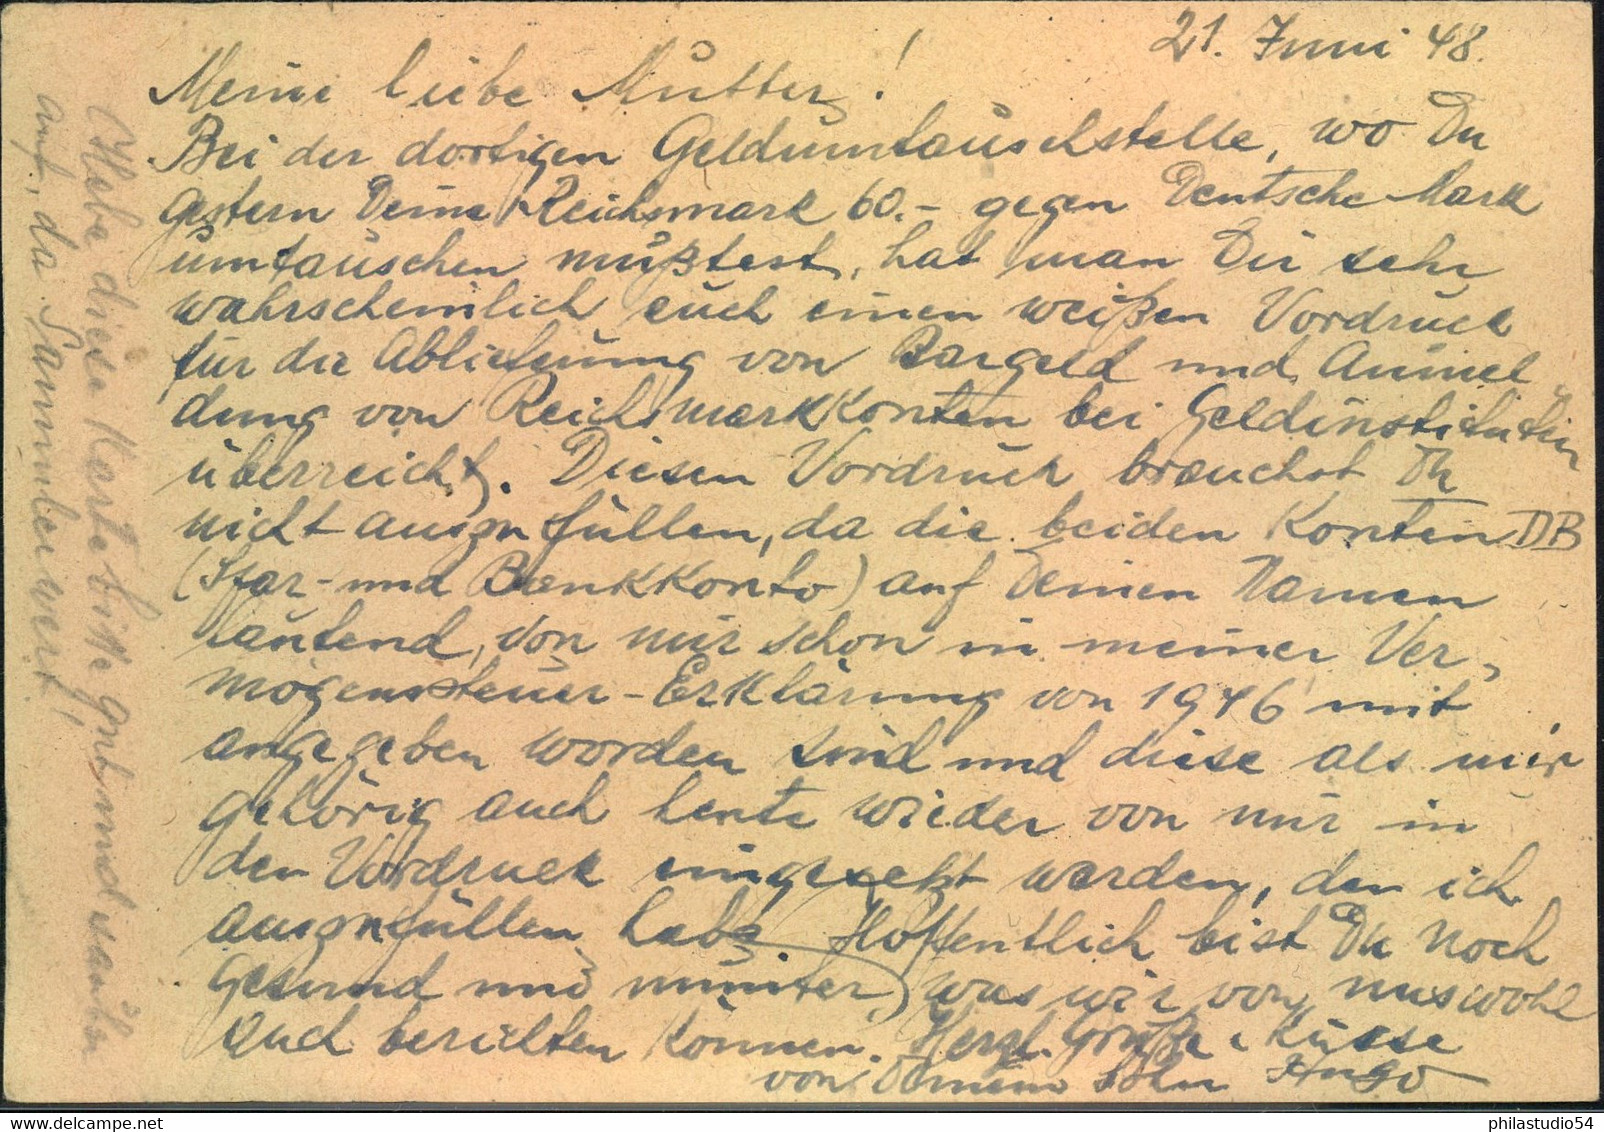 21. Juni 48.
Meine liebe Mutter!
Bei der dortigen Geldumtauschstelle, wo Du
gestern Deine Reichsmark 60.- gegen Deutsche Mark
umtauschen mußtest, hat man Dir sehr
wahrscheinlich auch einen weißen Vordruck
für die Ablieferung von Bargeld und Anmel
dung von Reichsmarkkonten bei Geldinstituten
überreicht. Diesen Vordruck brauchst Du
nicht auszufüllen, da die beiden Konten DB
(Spar- und Bankkonto) auf Deinen Namen
lautend, von mir schon in meiner Ver-
mögenssteuer-Erklärung von 1946 mit
angegeben worden sind und diese als mir
gehörig auch heute wieder von mir in
den Vordruck eingesetzt werden, den ich
auszufüllen habe. Hoffentlich bist Du noch
gesund und munter, was wir von uns wohl
auch berichten können. Herzl. Grüße u Küsse
von Deinem Sohn Hugo
Hebe diese Karte bitte gut und sauber
auf, da Sammlerwert!
philastudio54